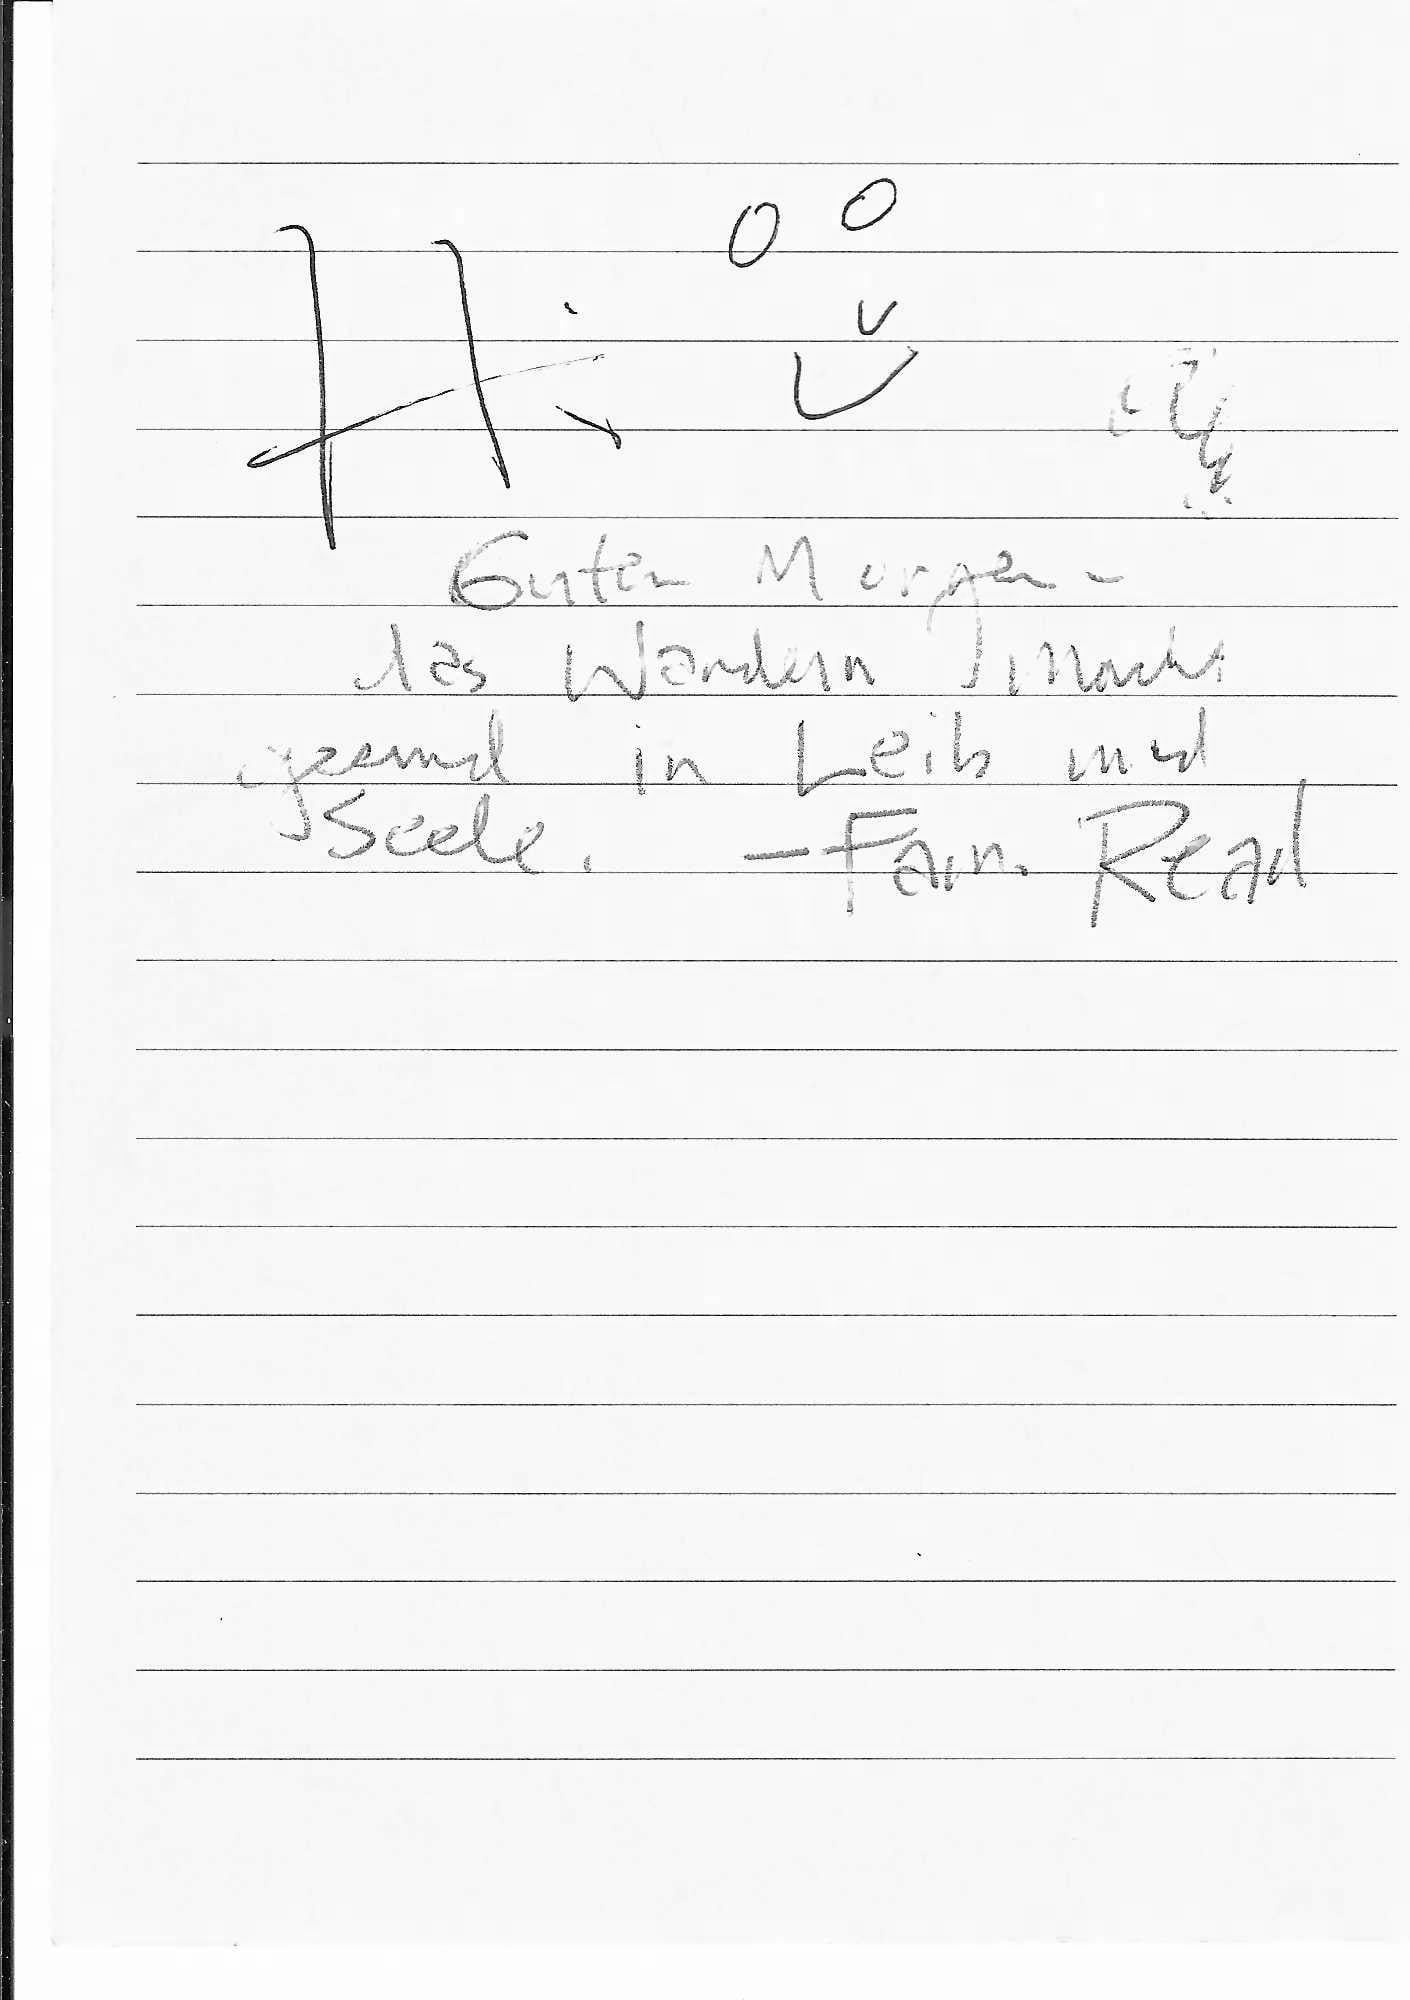 Hi
Guten Morgen -
das Wandern macht
gesund in Leib und
Seele. - Fam. Read